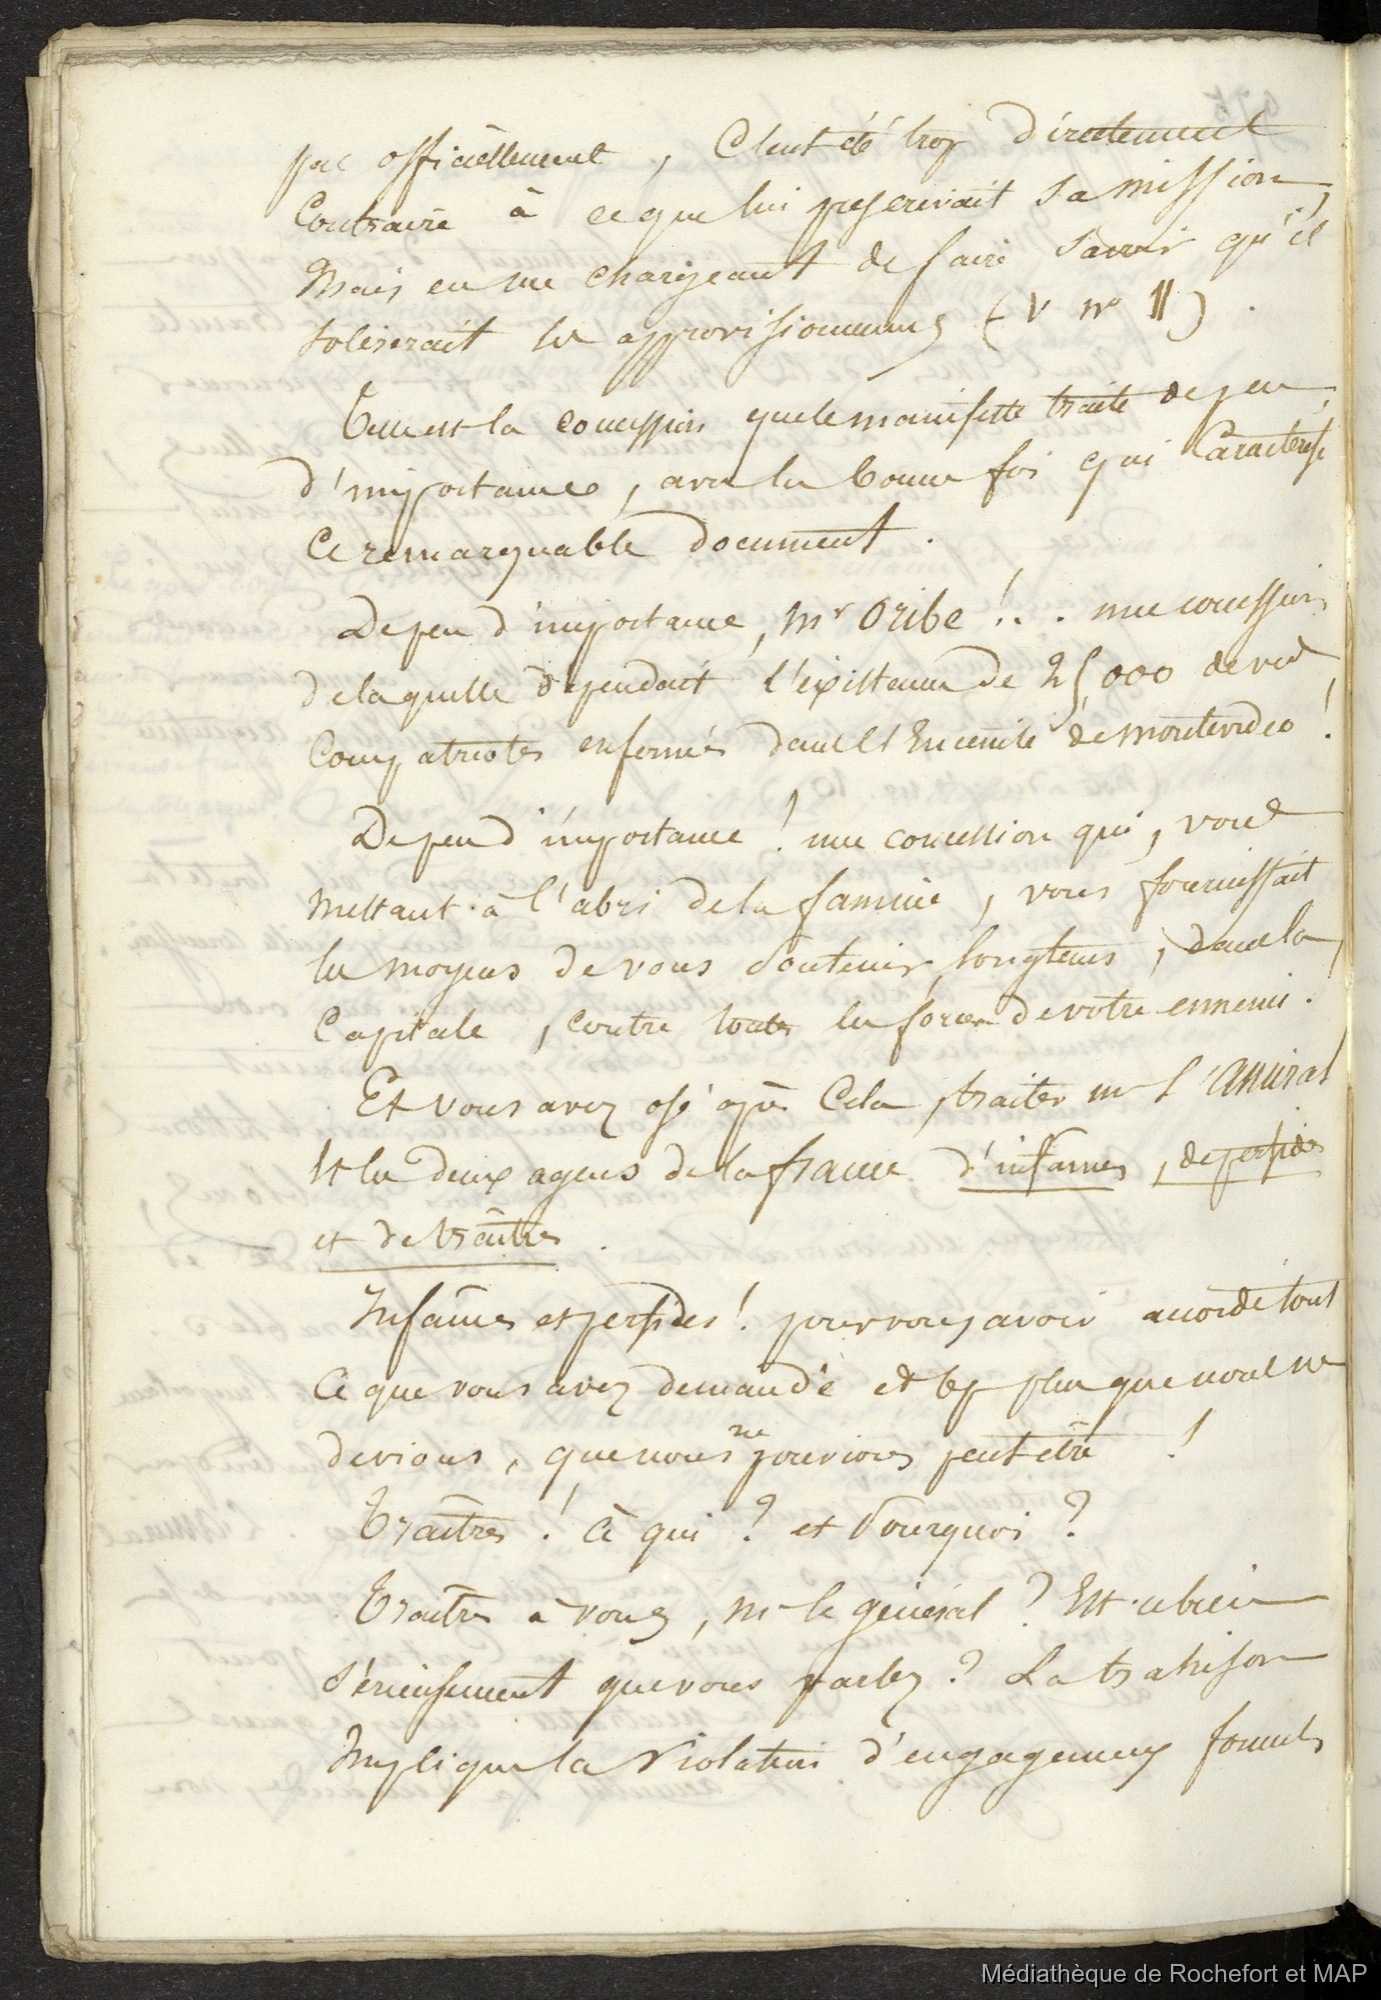 pas officiellement, c'eut été trop directement
contraire à ce que lui prescrivait sa mission,
mais en me chargeant de faire savoir qu'il
tolérerait les approvisionnemens (V nº 11).
Telle est la concession que le manifeste traite de peu
d'importance, avec la bonne foi qui caractérise
ce remarquable document.
De peu d'importance, Mr Oribe !... une concession
de laquelle dépendait l'existence de 25,000 de vos
compatriotes enfermés dans l'enceinte de Montevideo !
De peu d'importance ! une concession qui, vous
mettant à l'abri de la famine, vous fournissait
les moyens de vous soutenir longtems, dans la
capitale, contre toutes les forces de votre ennemi.
Et vous avez osé après cela, traiter mr l'amiral
et les deux agens de la france d'infames, de perfides
et de traîtres.
Infâmes et perfides ! pour vous avoir accordé tout
ce que vous avez demandé et plus que nous ne
devions, que nous ne pouvions peut être !
Traîtres ! à qui ? et pourquoi ?
Traîtres à vous, mr le général ? Est-ce bien
sérieusement que vous parlez ? La trahison
implique la violation d'engagemens formels
Médiathèque de Rochefort et MAP